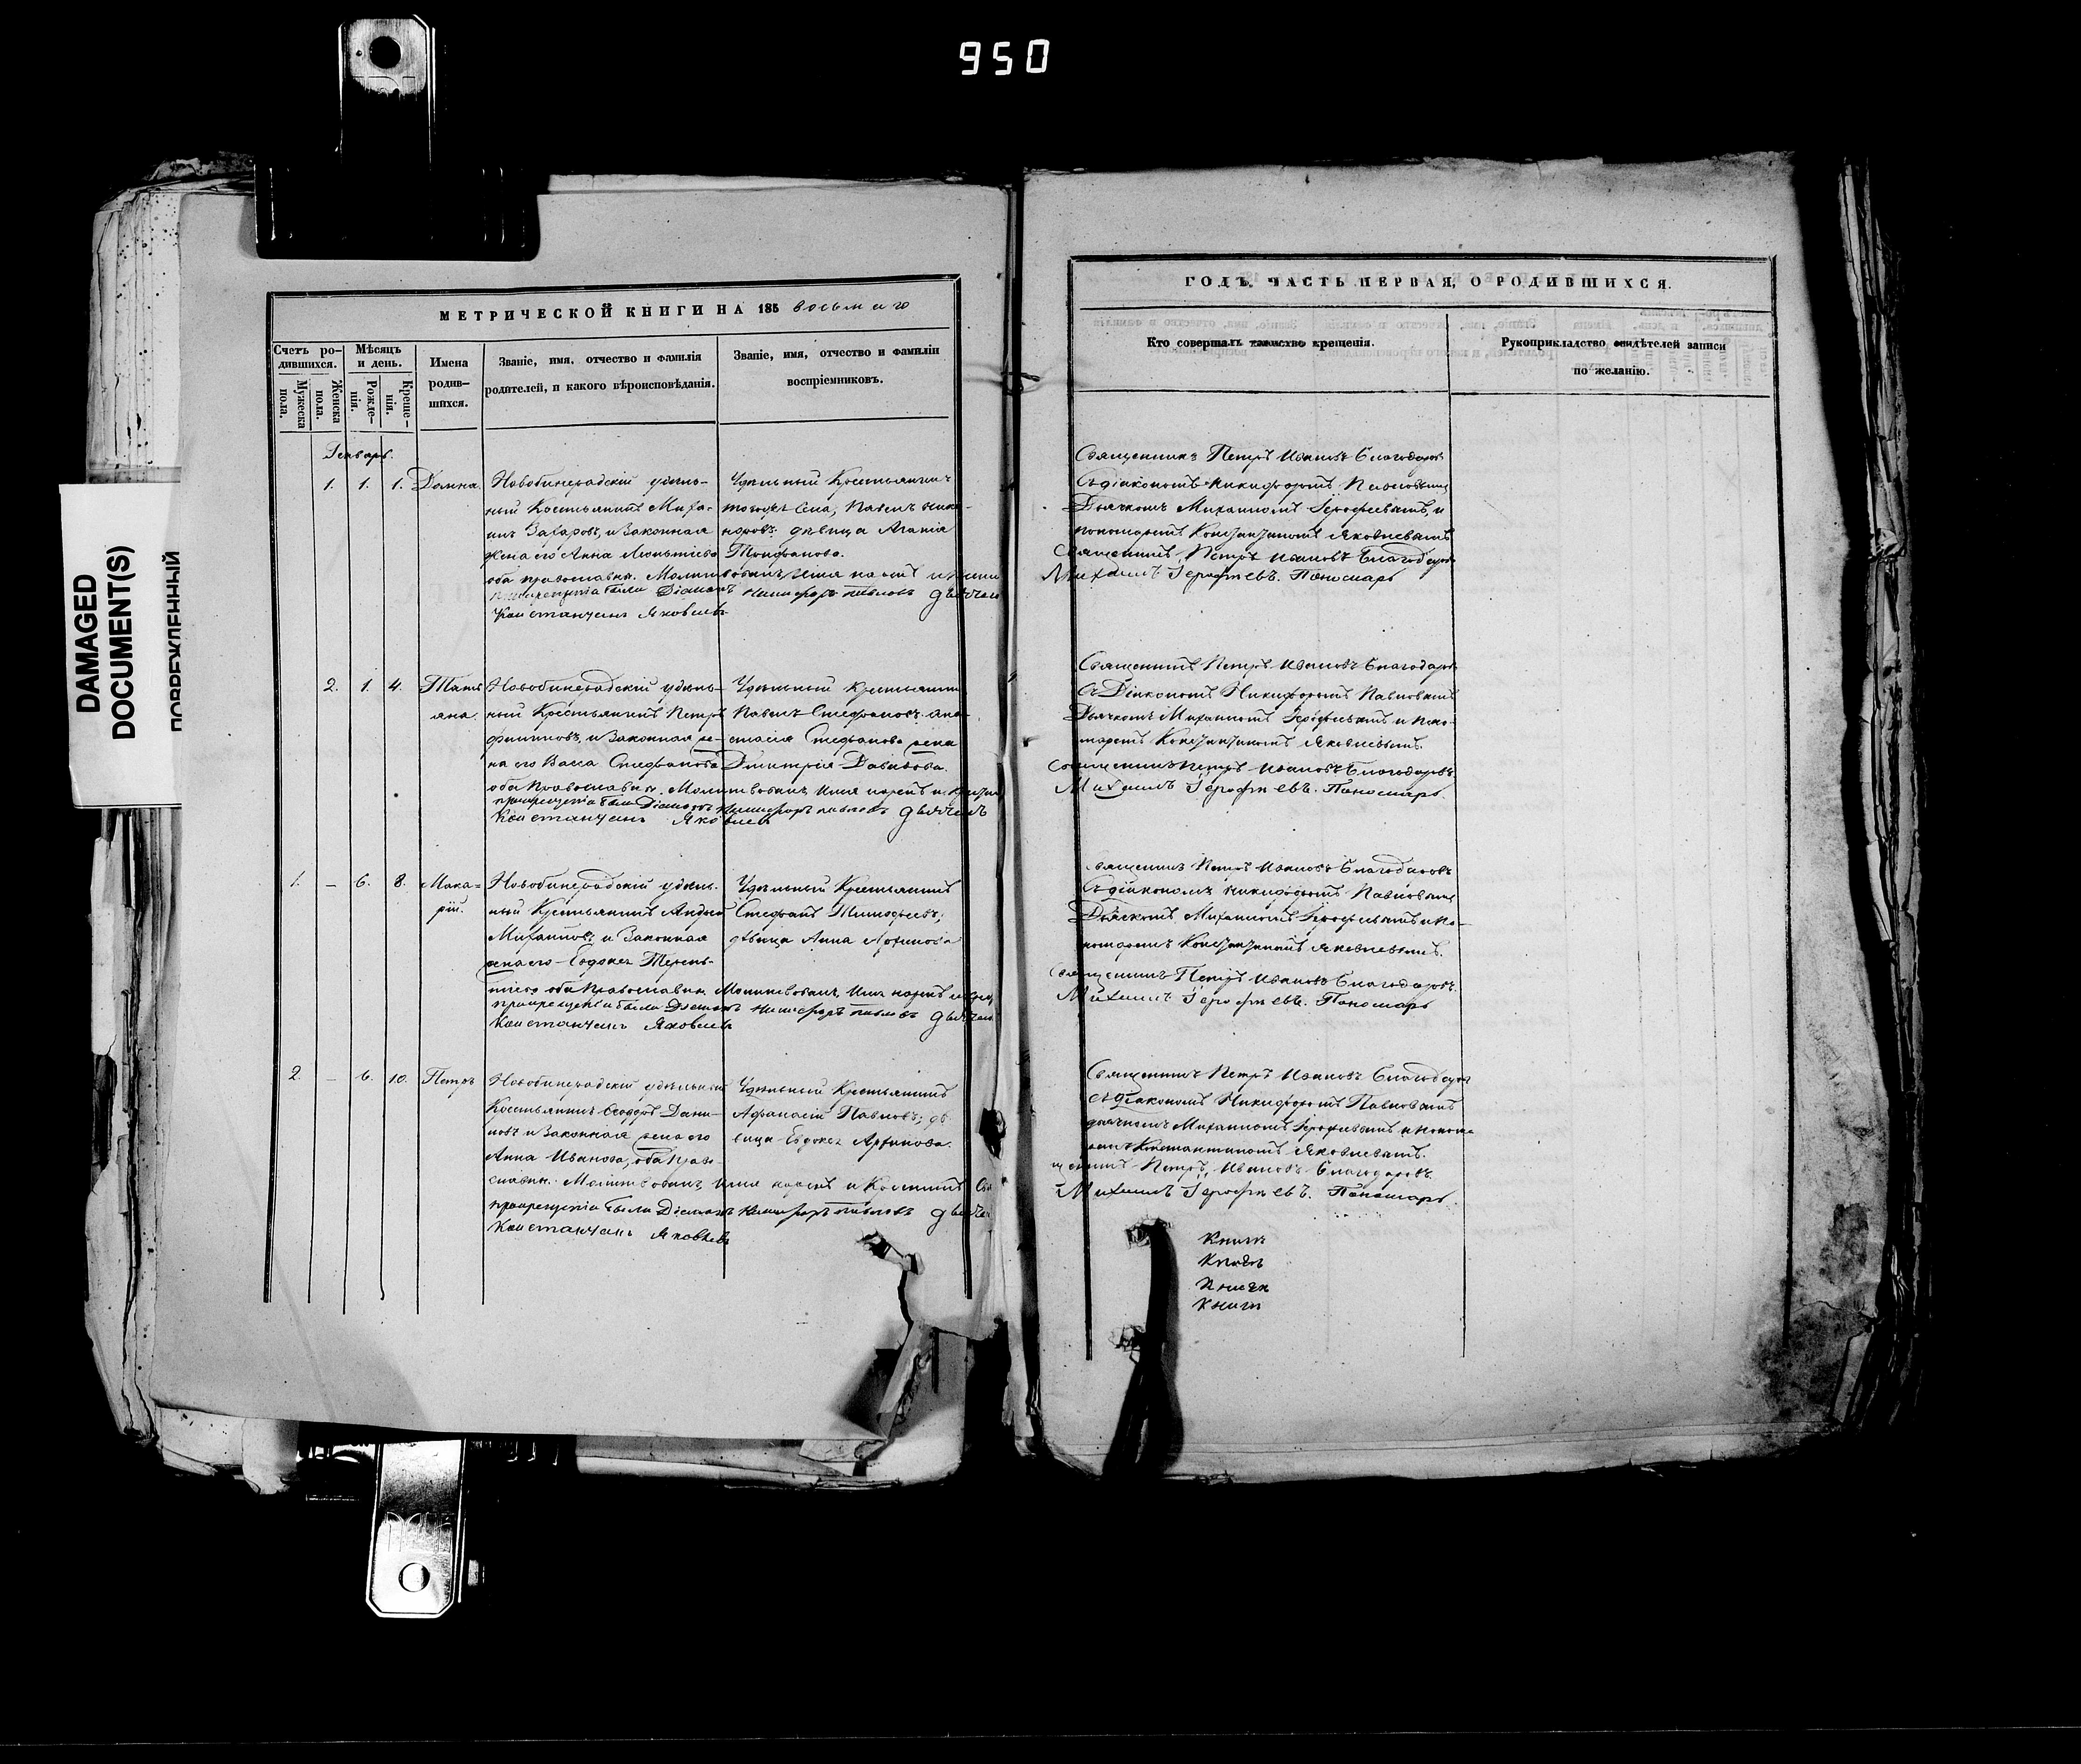 950
DAMAGED
DOCUMENT(S)
ПОВРЕЖДЕННЫЙ
МЕТРИЧЕСКОЙ КНИГИ НА 185 восьмаго
Счетъ ро-
дившихся.
Мужеска
пола.
Женска
пола.
Мѣсяцъ
и день.
Рожде-
нія.
Креще-
нія.
Имена
родив-
шихся.
Званіе, имя, отчество и фамилія
родителей, и какого вѣроисповѣданія.
Званіе, имя, отчество и фамиліи
воспріемниковъ.
Генварь.
1. 1. 1. Домна.
Новобинарадскій удѣль-
ный Крестьянинъ Миха-
илъ Захаровъ, и Законная
жена его Анна Леонтьева
оба православны. Молитвовалъ, Имя нарекъ и
при крещеніи были Діаконъ Никифоръ Павловъ дьячекъ
Констанчинъ Яковлевъ
Удѣльный Крестьянинъ
тогоже Села, Павелъ Ника-
норовъ. дѣвица Агапія
Трифонова.
2. 1. 4. Тать
яна.
Новобинарадскій удѣль-
ный Крестьянинъ Петръ
Филиповъ, и Законная же-
на его Васса Стефанова
оба Православны. Молитвовалъ Имя нарекъ и
при крещеніи были Діаконъ Никифоръ Павловъ дьячекъ
Констанчинъ Яковлевъ
Удѣльный Крестьянинъ
Павелъ Стефановъ, Ана-
стасія Стефанова жена
Димитрія Давыдова.
1. – 6. 8. Мака=
рій.
Новобинарадскій удѣль-
ный Крестьянинъ Андрей
Михаиловъ, и Законная
жена его Евдокея Терень-
тьева оба Православны Молитвовалъ, Имя нарекъ и
при крещеніи были Діаконъ Никифоръ Павловъ дьячекъ
Констанчинъ Яковлевъ
Удѣльный Крестьянинъ
Стефанъ Тимофеевъ;
дѣвица Анна Логинова
2. – 6. 10. Петръ
Новобинарадскій удѣльный
Крестьянинъ Феодоръ Дани-
ловъ и Законная жена его
Анна Иванова, оба Прав-
славны. Молитвовалъ, Имя нарекъ и Крестилъ
при крещеніи были Діаконъ Никифоръ Павловъ дьячекъ
Констанчинъ Яковлевъ
Удѣльный Крестьянинъ
Афанасій Павловъ; дѣ
вица Евдокея Архипова.
ГОДЪ. ЧАСТЬ ПЕРВАЯ, О РОДИВШИХСЯ.
Кто совершалъ таинство крещенія.
Рукоприкладство свидѣтелей записи
по желанію.
Священникъ Петръ Ивановъ Благодаровъ
Съ діакономъ Никифоромъ Павловымъ
Дьячкомъ Михаиломъ Ерофеевымъ, и
пономаремъ Константиномъ Яковлевымъ
Священникъ Петръ Ивановъ Благодаровъ
Михаилъ Ерофѣевъ. Пономарь
Священникъ Петръ Ивановъ Благодаровъ
Съ Діакономъ Никифоромъ Павловымъ
Дьячкомъ Михаиломъ Ерофеевымъ и Поно-
маремъ Константиномъ Яковлевымъ.
Священникъ Петръ Ивановъ Благодаровъ
Михаилъ Ерофѣевъ. Пономарь.
Священникъ Петръ Ивановъ Благодаровъ
Съ діакономъ Никифоромъ Павловымъ
Дьячкомъ Михаиломъ Ерофеевымъ и По-
номаремъ Константиномъ Яковлевымъ.
Священникъ Петръ Ивановъ Благодаровъ.
Михаилъ Ерофѣевъ. Пономарь
Священникъ Петръ Ивановъ Благодаровъ
съ діакономъ Никифоромъ Павловымъ
дьячкомъ Михаиломъ Ерофеевымъ и понома
ремъ Константиномъ Яковлевымъ.
щенникъ Петръ Ивановъ Благодаровъ.
Михаилъ Ерофѣевъ. Пономарь.